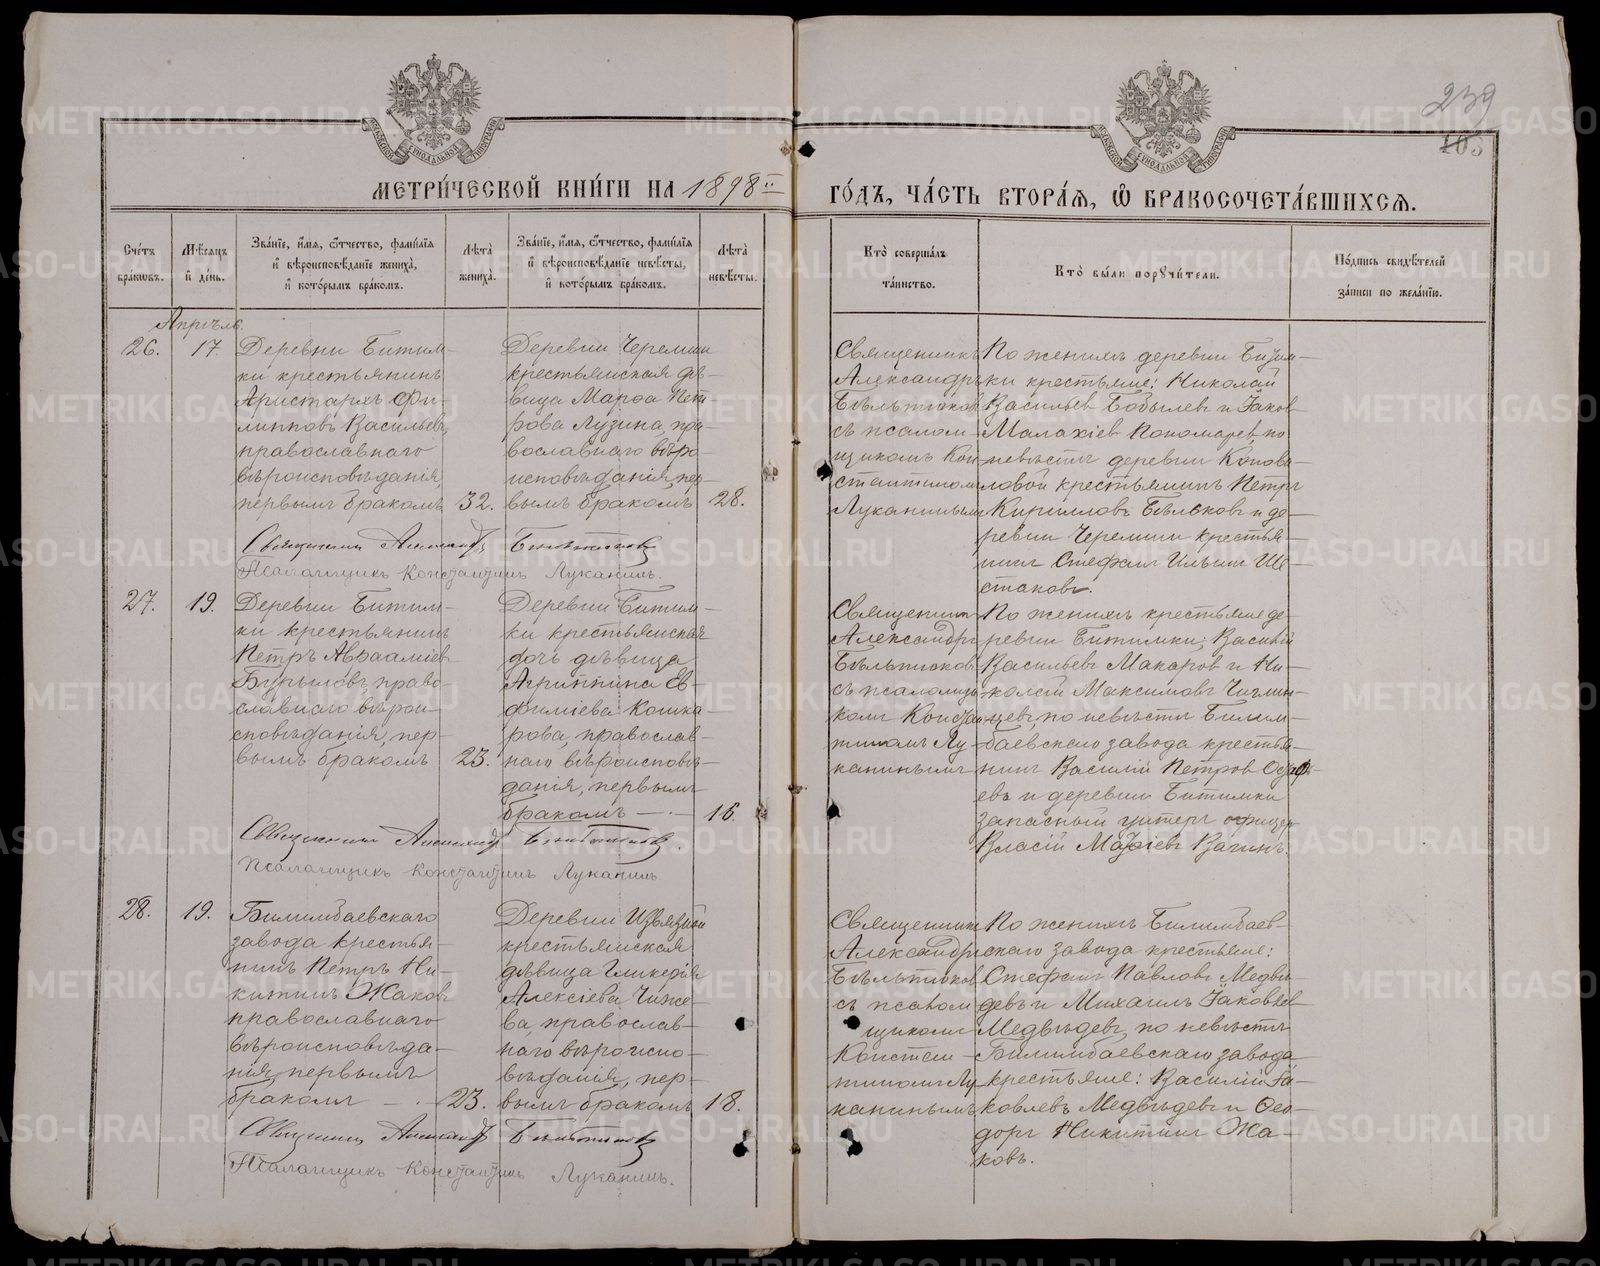 239
103
МЕТРИ́ЧЕСКОЙ КНИ́ГИ НА 1898й ГО́ДЪ, ЧА́СТЬ ВТОРА́Я, Ѡ БРАКОСОЧЕТА́ВШИХСЯ.
Сче́тъ браковъ.
Мѣ́сяцъ и де́нь.
Зва́нїе, и́мя, ѻ́тчество, фами́лїя
и вѣроисповѣ́данїе жениха̀,
и кото́рымъ бра́комъ.
Лѣта̀ жениха̀.
Зва́нїе, и́мя, ѻ́тчество, фами́лїя
и вѣроисповѣ́данїе невѣ́сты,
и кото́рымъ бра́комъ.
Лѣта̀ невѣ́сты.
Кто̀ соверша́лъ
та́инство.
Кто̀ бы́ли порꙋчи́тели.
По́дпись свидѣ́телей
за́писи по жела́нїю.
Апрѣль.
26.
17.
Деревни Битим-
ки крестьянинъ
Аристархъ Фи-
липповъ Васильевъ,
православнаго
вѣроисповѣданія,
первымъ бракомъ
32.
Деревни Черемши
крестьянская дѣ-
вица Марѳа Пет-
рова Лузина, пра-
вославнаго вѣро-
исповѣданія, пер-
вымъ бракомъ
28.
Священникъ
Александръ
Бѣльтюковъ
съ псалом-
щикомъ Кон-
стантиномъ
Луканинымъ
По женихѣ деревни Битим-
ки крестьяне: Николай
Васильевъ Бобылевъ и Іаковъ
Малахіевъ Пономаревъ, по
невѣстѣ деревни Конова-
ловой крестьянинъ Петръ
Кирилловъ Бѣльковъ и де-
ревни Черемши крестья-
нинъ Стефанъ Ильинъ Ше-
стаковъ.
Священникъ Александръ Бѣльтюковъ
Псаломщикъ Константинъ Луканинъ.
27.
19.
Деревни Битим-
ки крестьянинъ
Петръ Авраамiевъ
Бурыловъ, право-
славнаго вѣрои-
сповѣданія, пер-
вымъ бракомъ
23.
Деревни Битим-
ки крестьянская
дочь дѣвица
Агриппина Ев-
фиміева Кошка-
рова, православ-
наго вѣроисповѣ-
данія, первымъ
бракомъ
16.
Священникъ
Александръ
Бѣльтюковъ
съ псаломщи-
комъ Констан-
тиномъ Лу-
канинымъ
По женихѣ крестьяне де-
ревни Битимки: Василій
Васильевъ Макаровъ и Ни-
колай Максимовъ
по невѣстѣ Билим-
баевскаго завода крестья-
нинъ Василій Петровъ
евъ и деревни Битимки
запасный унтеръ офицеръ
Власій Вагинъ.
Священникъ Александръ Бѣльтюковъ.
Псаломщикъ Константинъ Луканинъ
28.
19.
Билимбаевскаго
завода крестья-
нинъ Петръ Ни-
китинъ Жаковъ
православнаго
вѣроисповѣда-
нія, первымъ
бракомъ
23.
Деревни Извязной
крестьянская
дѣвица Гликерія
Алексіева Чиже-
ва, православ-
наго вѣроиспо-
вѣданія, пер-
вымъ бракомъ
18.
Священникъ
Александръ
Бѣльтюковъ
съ псалом
щикомъ
Констан-
тиномъ Лу-
канинымъ
По женихѣ Билимбаев-
скаго завода крестьяне:
Стефанъ Павловъ Медвѣ-
девъ и Михаилъ Іаковлевъ
Медвѣдевъ, по невѣстѣ
Билимбаевскаго завода
крестьяне: Василій Іа-
ковлевъ Медвѣдевъ и Ѳео-
доръ Никитинъ Жа-
ковъ.
Священникъ Александръ Бѣльтюковъ
Псаломщикъ Константинъ Луканинъ.